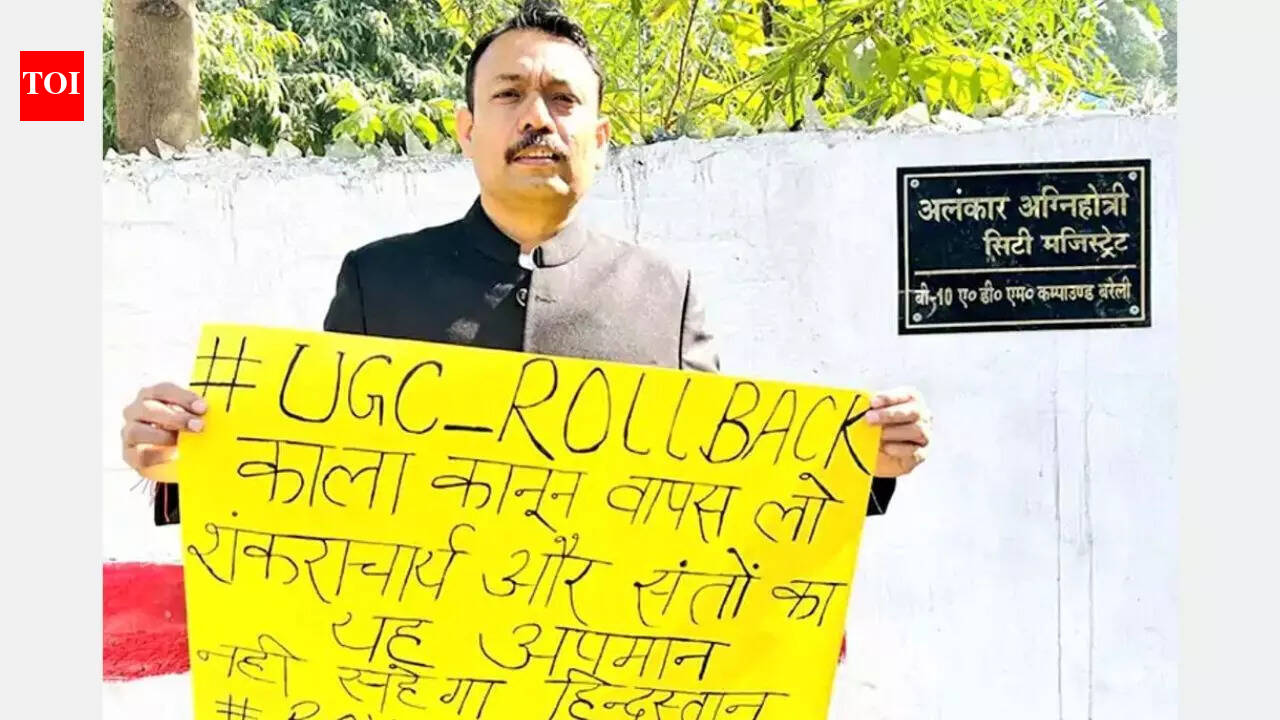 TOI
अलंकार अग्निहोत्री
सिटी मजिस्ट्रेट
बी-10 ए० डी० एम० कम्पाउण्ड बरेली
#UGC_ROLLBACK
काला कानून वापस लो
शंकराचार्य और संतों का
यह अपमान
नही सहेगा हिन्दस्तान